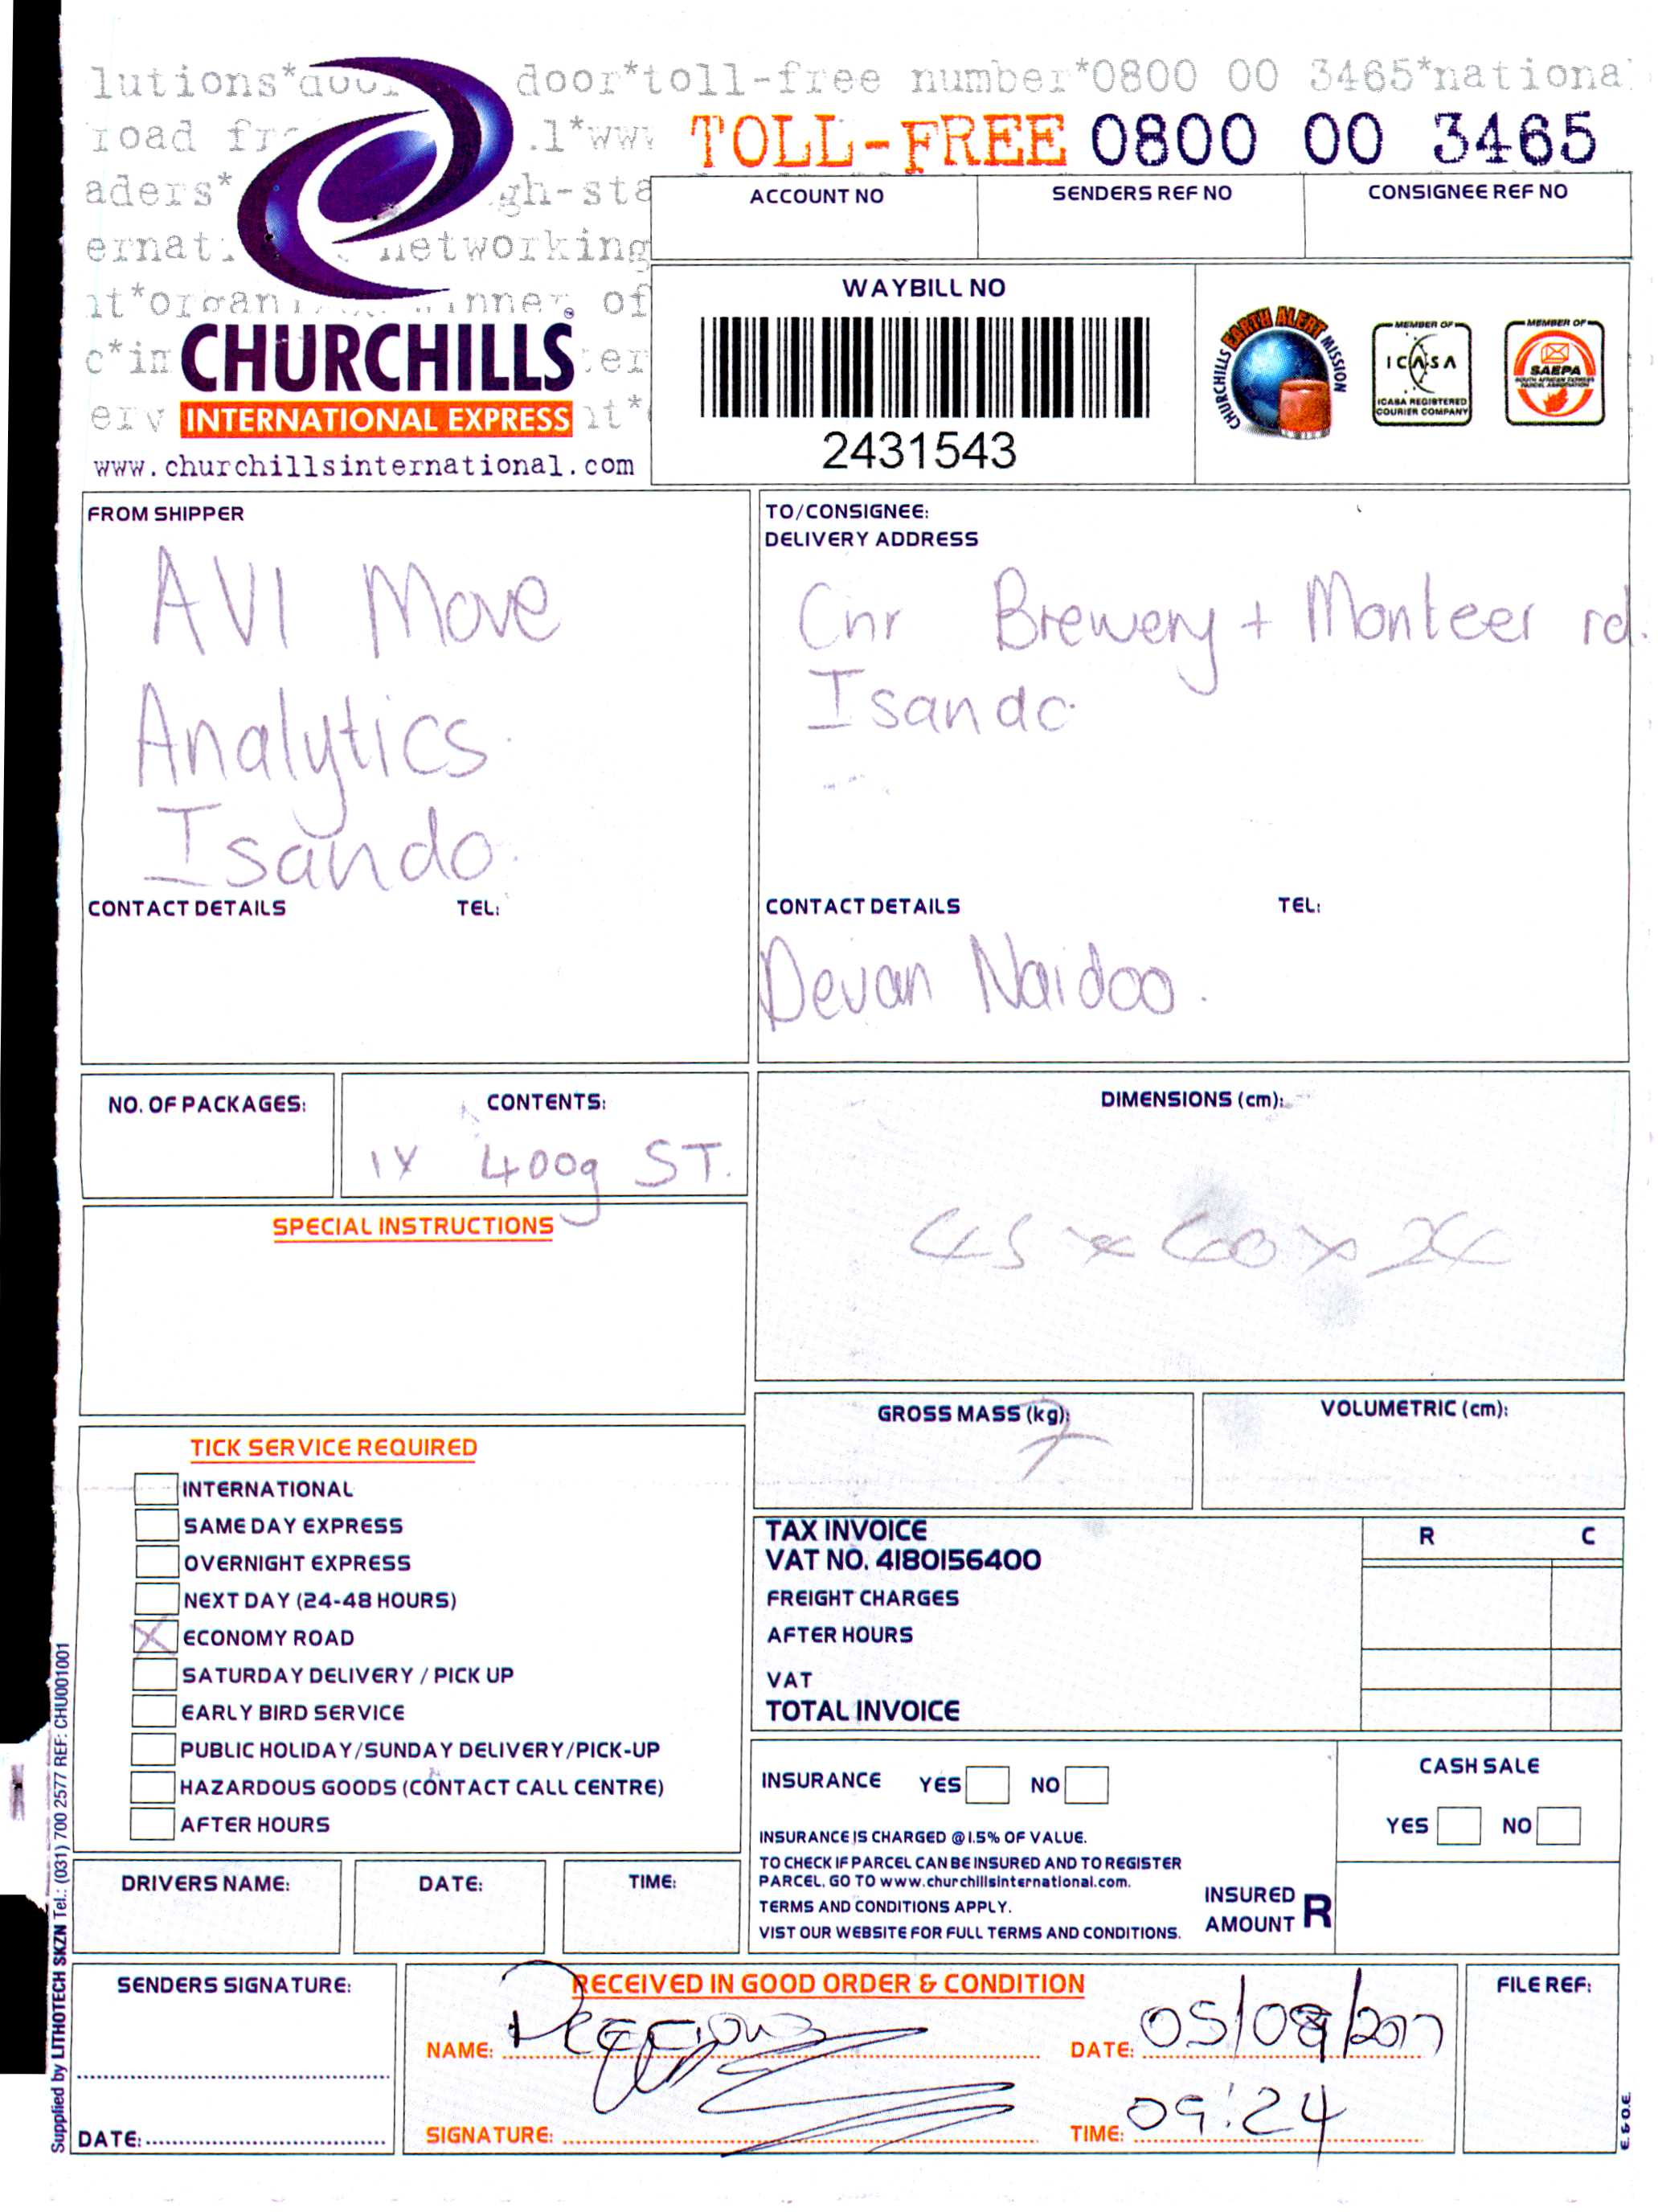 lutions* door*toll-free number*0800 00 3465*national
road .l*www TOLL-FREE 0800 00 3465
aders* gh-sta
networking
of
www.churchillsinternational.com
CHURCHILLS
INTERNATIONAL EXPRESS
ACCOUNT NO
SENDERS REF NO
CONSIGNEE REF NO
WAYBILL NO
2431543
CHURCHILLS EARTH ALERT MISSION
MEMBER OF
ICASA
ICASA REGISTERED
COURIER COMPANY
MEMBER OF
SAEPA
SOUTH AFRICAN EXPRESS
PARCEL ASSOCIATION
FROM SHIPPER
AVI Move
Analytics
Isando.
CONTACT DETAILS TEL:
TO/CONSIGNEE:
DELIVERY ADDRESS
Cnr Brewery + Monteer rd.
Isando
CONTACT DETAILS TEL:
Devan Naidoo.
NO. OF PACKAGES:
CONTENTS:
1X 400g ST.
DIMENSIONS (cm):
45 x 40 x 24
SPECIAL INSTRUCTIONS
GROSS MASS (kg):
7
VOLUMETRIC (cm):
TICK SERVICE REQUIRED
INTERNATIONAL
SAME DAY EXPRESS
OVERNIGHT EXPRESS
NEXT DAY (24-48 HOURS)
X ECONOMY ROAD
SATURDAY DELIVERY / PICK UP
EARLY BIRD SERVICE
PUBLIC HOLIDAY/SUNDAY DELIVERY/PICK-UP
HAZARDOUS GOODS (CONTACT CALL CENTRE)
AFTER HOURS
TAX INVOICE R C
VAT NO. 4180156400
FREIGHT CHARGES
AFTER HOURS
VAT
TOTAL INVOICE
INSURANCE YES NO
INSURANCE IS CHARGED @ 1.5% OF VALUE.
TO CHECK IF PARCEL CAN BE INSURED AND TO REGISTER
PARCEL, GO TO www.churchillsinternational.com.
TERMS AND CONDITIONS APPLY.
VIST OUR WEBSITE FOR FULL TERMS AND CONDITIONS.
INSURED
AMOUNT R
CASH SALE
YES NO
DRIVERS NAME:
DATE:
TIME:
SENDERS SIGNATURE:
DATE:
RECEIVED IN GOOD ORDER & CONDITION
NAME:
DATE: 05/09/2017
SIGNATURE:
TIME: 09:24
FILE REF:
E. & O.E.
Supplied by LITHOTECH SSKZN Tel.: (031) 700 2577 REF: CHU001001